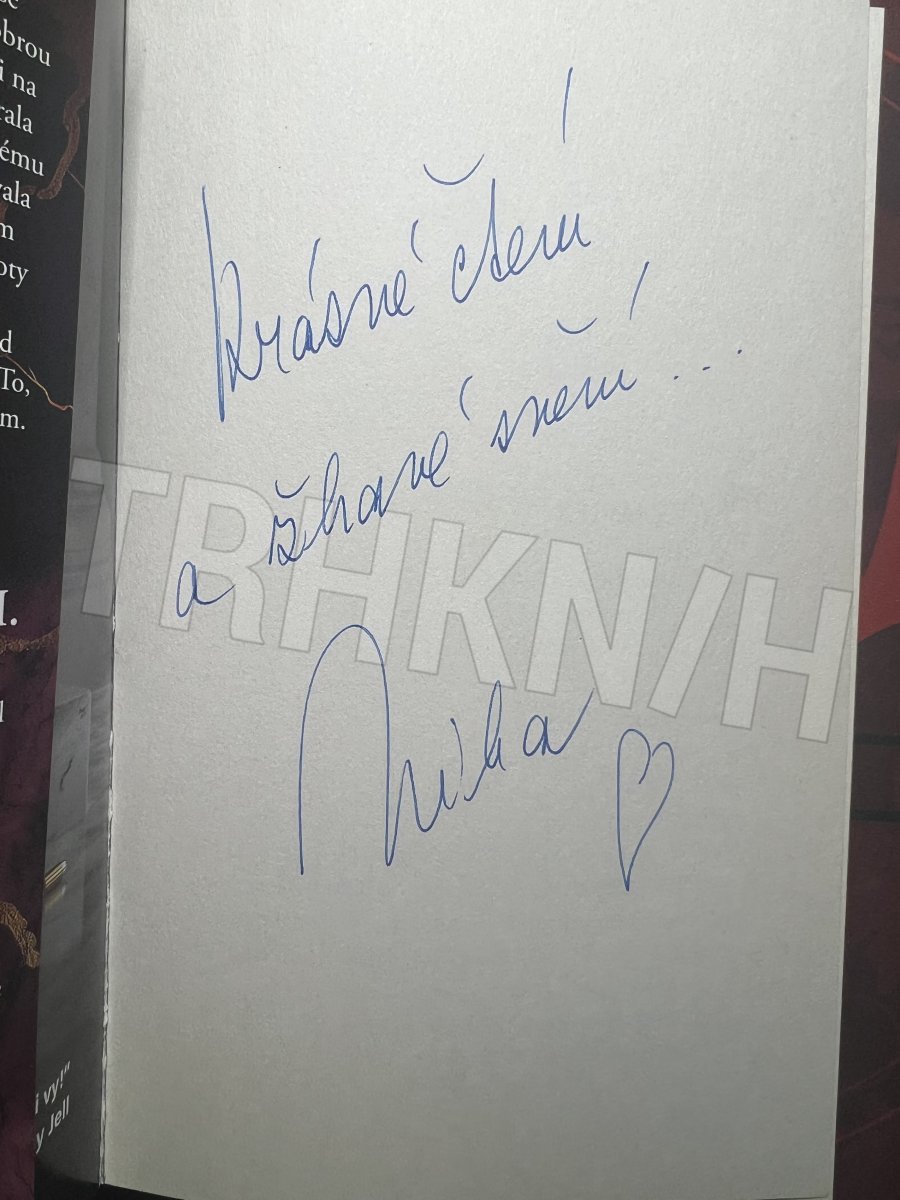 obrou
i na
rala
ému
vala
m
oty
d
To,
m.
I.
i vy!"
y Jell
krásné čtení
a žhavé snění...
Nika
TRHKN/H